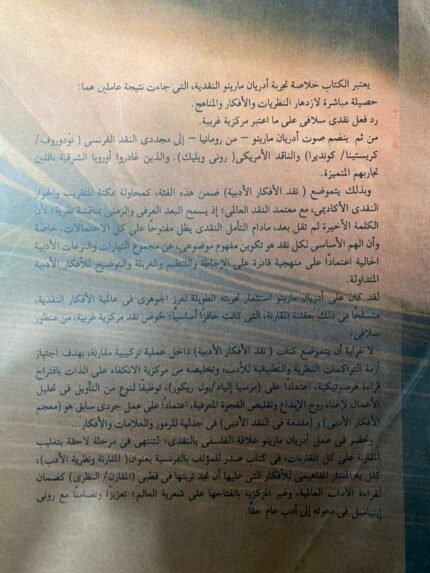 يعتبر الكتاب خلاصة تجربة أدريان مارينو النقدية، التى جاءت نتيجة عاملين هما:
حصيلة مباشرة لازدهار النظريات والأفكار والمناهج.
رد فعل نقدى سلافى على ما اعتبر مركزية غربية.
من ثم ينضم صوت أدريان مارينو – من رومانيا – إلى مجددى النقد الفرنسى (تودوروف/
كريستيفا/ كونديرا) والناقد الأمريكى( رونى ويليك). والذين غادروا أوروبا الشرقية ناقلين
تجاربهم المتميزة.
وبذلك يتموضع ( نقد الأفكار الأدبية) ضمن هذه الفئة، كمحاولة ممكنة للتقريب والحوار
النقدى الأكاديمى، مع معتمد النقد العالمى؛ إذ يسمح البعد العرفى والزمنى بمناقشة نظرية؛ لأن
الكلمة الأخيرة لم تقل بعد، مادام التأمل النقدى يظل مفتوحًا على كل الاحتمالات، خاصة
وأن الهم الأساسى لكل نقد هو تكوين مفهوم موضوعى، عن مجموع التيارات والنزعات الأدبية
الحالية اعتمادًا على منهجية قادرة على الإحاطة والتنظيم والغربلة والتوضيح للأفكار الأدبية
المتداولة.
لقد كان على أدريان مارينو استثمار تجربته الطويلة لفرز الجوهرى فى عالمية الأفكار النقدية،
متسلحاً فى ذلك بعقلنة المقارنة، التى كانت حافزًا أساسيًا؛ لخوض نقد مركزية غربية، من منظور
سلافى.
لا غرابة أن يتموضع كتاب ( نقد الأفكار الأدبية) داخل عملية تركيبية مقارنة، بهدف اجتياز
أزمة التراكمات النظرية والتطبيقية للأدب، وتخليصه من مركزية الانكفاء على الذات باقتراح
قراءة هرمنوتيكية، اعتمادًا على (مرسيا إلياد/بول ريكور)، توظيفًا لنوع من التأويل فى تحليل
الأعمال لإغناء روح الإبداع وتقليص الفجوة المعرفية، اعتمادًا على عمل جردى سابق هو (معجم
الأفكار الأدبى ) و (مقدمة فى النقد الأدبى ) فى جدلية للرموز والعلامات والأفكار...
وتحضر فى عمل أدريان مارينو علاقة الفلسفى بالنقدى؛ لتنتهى فى مرحلة لاحقة بتغليب
المقارنة على كل المقاربات، فى كتاب صدر للمؤلف بالفرنسية بعنوان( المقارنة ونظرية الأدب)،
كلل به المسار المفاهيمى للأفكار التى عليها أن تجد تربتها فى قطبى (المقارن/ النظرى) كضمان
لقراءة الآداب العالمية، وغير المركزية بانفتاحها على شعرية العالم؛ تعزيزًا وتضامنًا مع رونى
إيتيامبل فى دعوته إلى أدب عام حقًا.